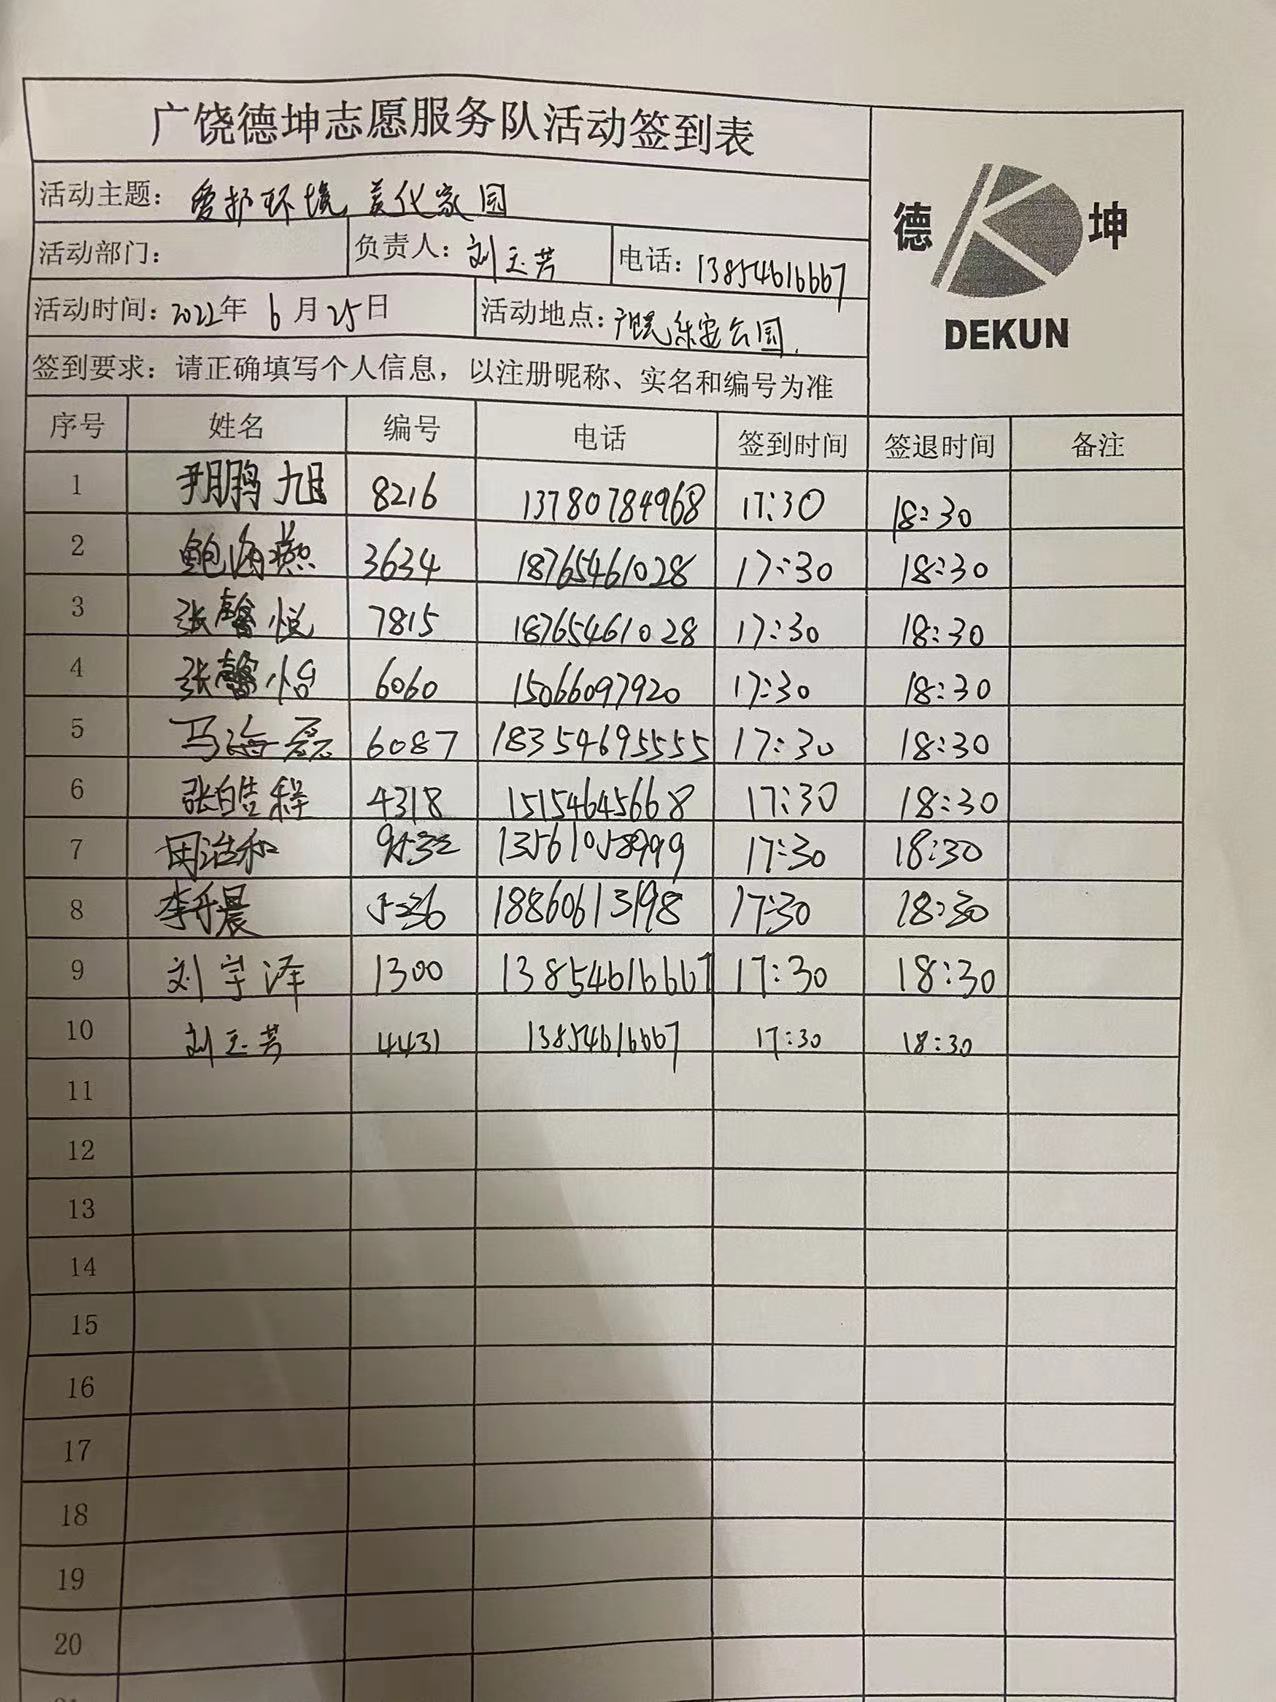 广饶德坤志愿服务队活动签到表
德 坤
DEKUN
活动主题: 爱护环境 美化家园
活动部门: 负责人: 刘玉芳 电话: 13854616667
活动时间: 2022年 6 月 25日 活动地点: 广饶乐安公园.
签到要求: 请正确填写个人信息, 以注册昵称、实名和编号为准
序号 姓名 编号 电话 签到时间 签退时间 备注
1 尹鹏旭 8216 13780784968 17:30 18:30
2 鲍海燕 3634 18765461028 17:30 18:30
3 张馨悦 7815 18765461028 17:30 18:30
4 张馨怡 6060 15066097920 17:30 18:30
5 马海磊 6087 18354695555 17:30 18:30
6 张皓程 4318 15154645668 17:30 18:30
7 13561058999 17:30 18:30
8 18860613198 17:30 18:30
9 刘宇泽 1300 13854616667 17:30 18:30
10 刘玉芳 4431 13854616667 17:30 18:30
11
12
13
14
15
16
17
18
19
20